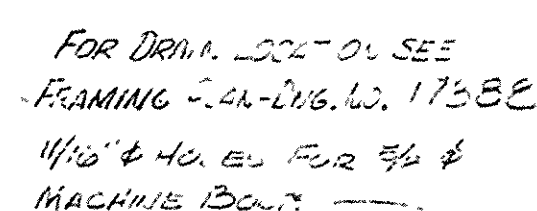 FOR DRAIN LOCATION SEE
FRAMING PLAN-DWG. NO. 1738
11/16" ⌀ HOLES FOR 5/8 ⌀
MACHINE BOLTS